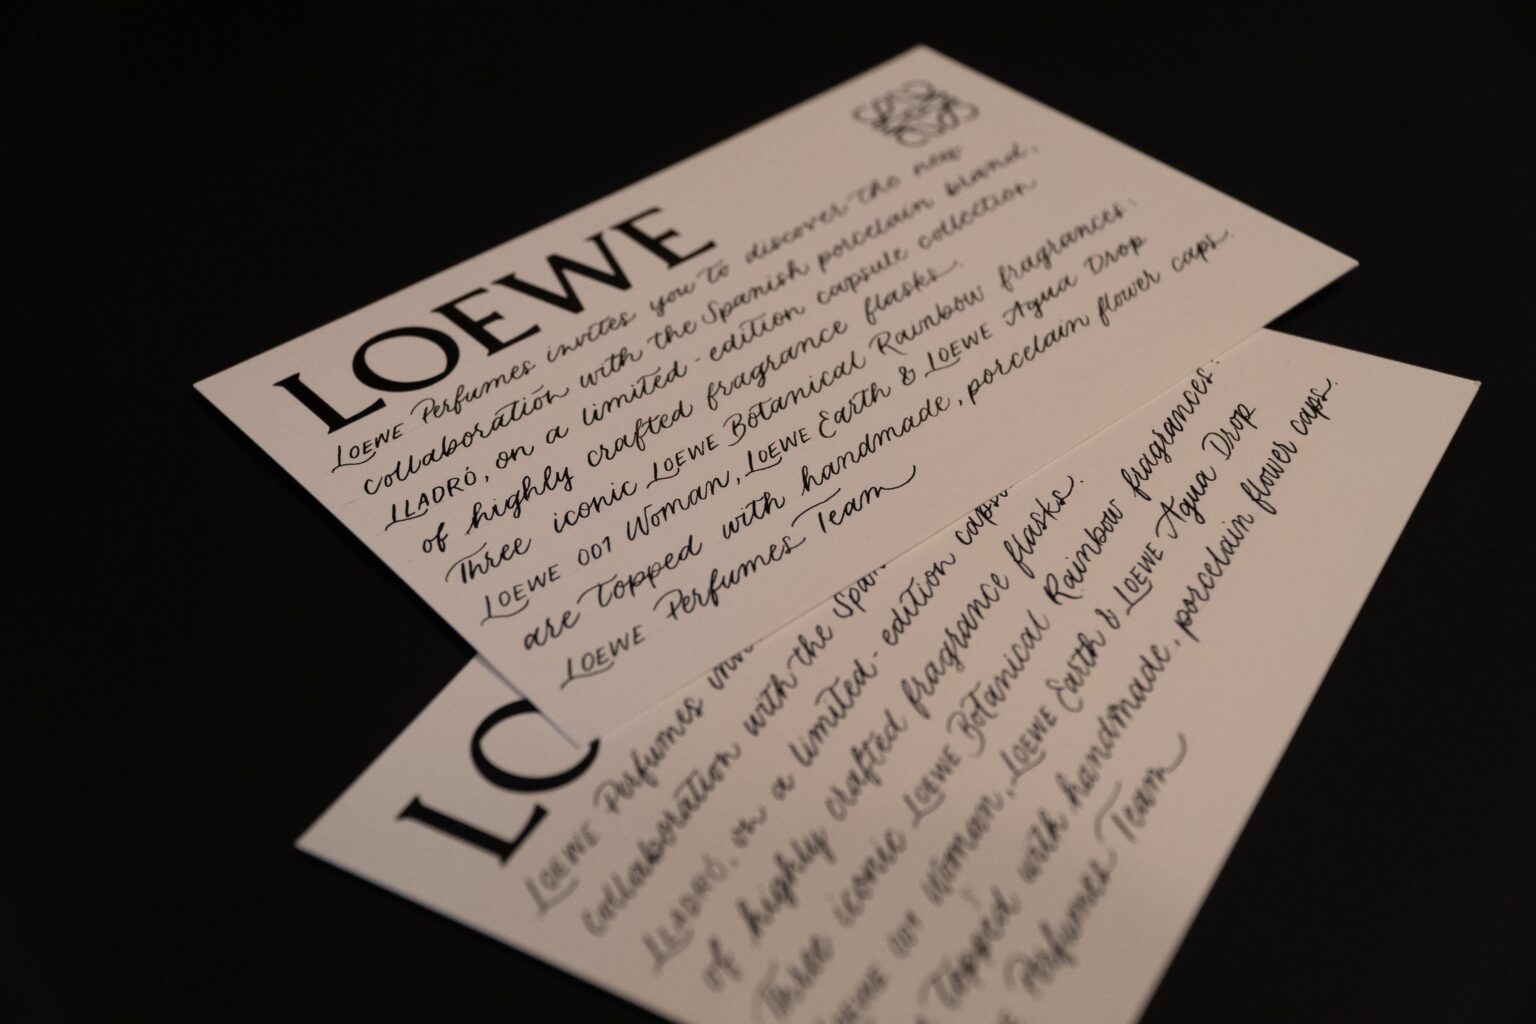 LOEWE
LOEWE Perfumes invites you to discover the new
collaboration with the Spanish porcelain brand,
LLADRÓ, on a limited-edition capsule collection
of highly crafted fragrance flasks.
Three iconic LOEWE Botanical Rainbow fragrances:
LOEWE 001 Woman, LOEWE Earth & LOEWE Agua Drop
are topped with handmade, porcelain flower caps.
LOEWE Perfumes Team
LO
LOEWE Perfumes inv
collaboration with the Spa
LLADRÓ, on a limited-edition caps
of highly crafted fragrance flasks.
Three iconic LOEWE Botanical Rainbow fragrances:
LOEWE 001 Woman, LOEWE Earth & LOEWE Agua Drop
topped with handmade, porcelain flower caps.
Perfumes Team